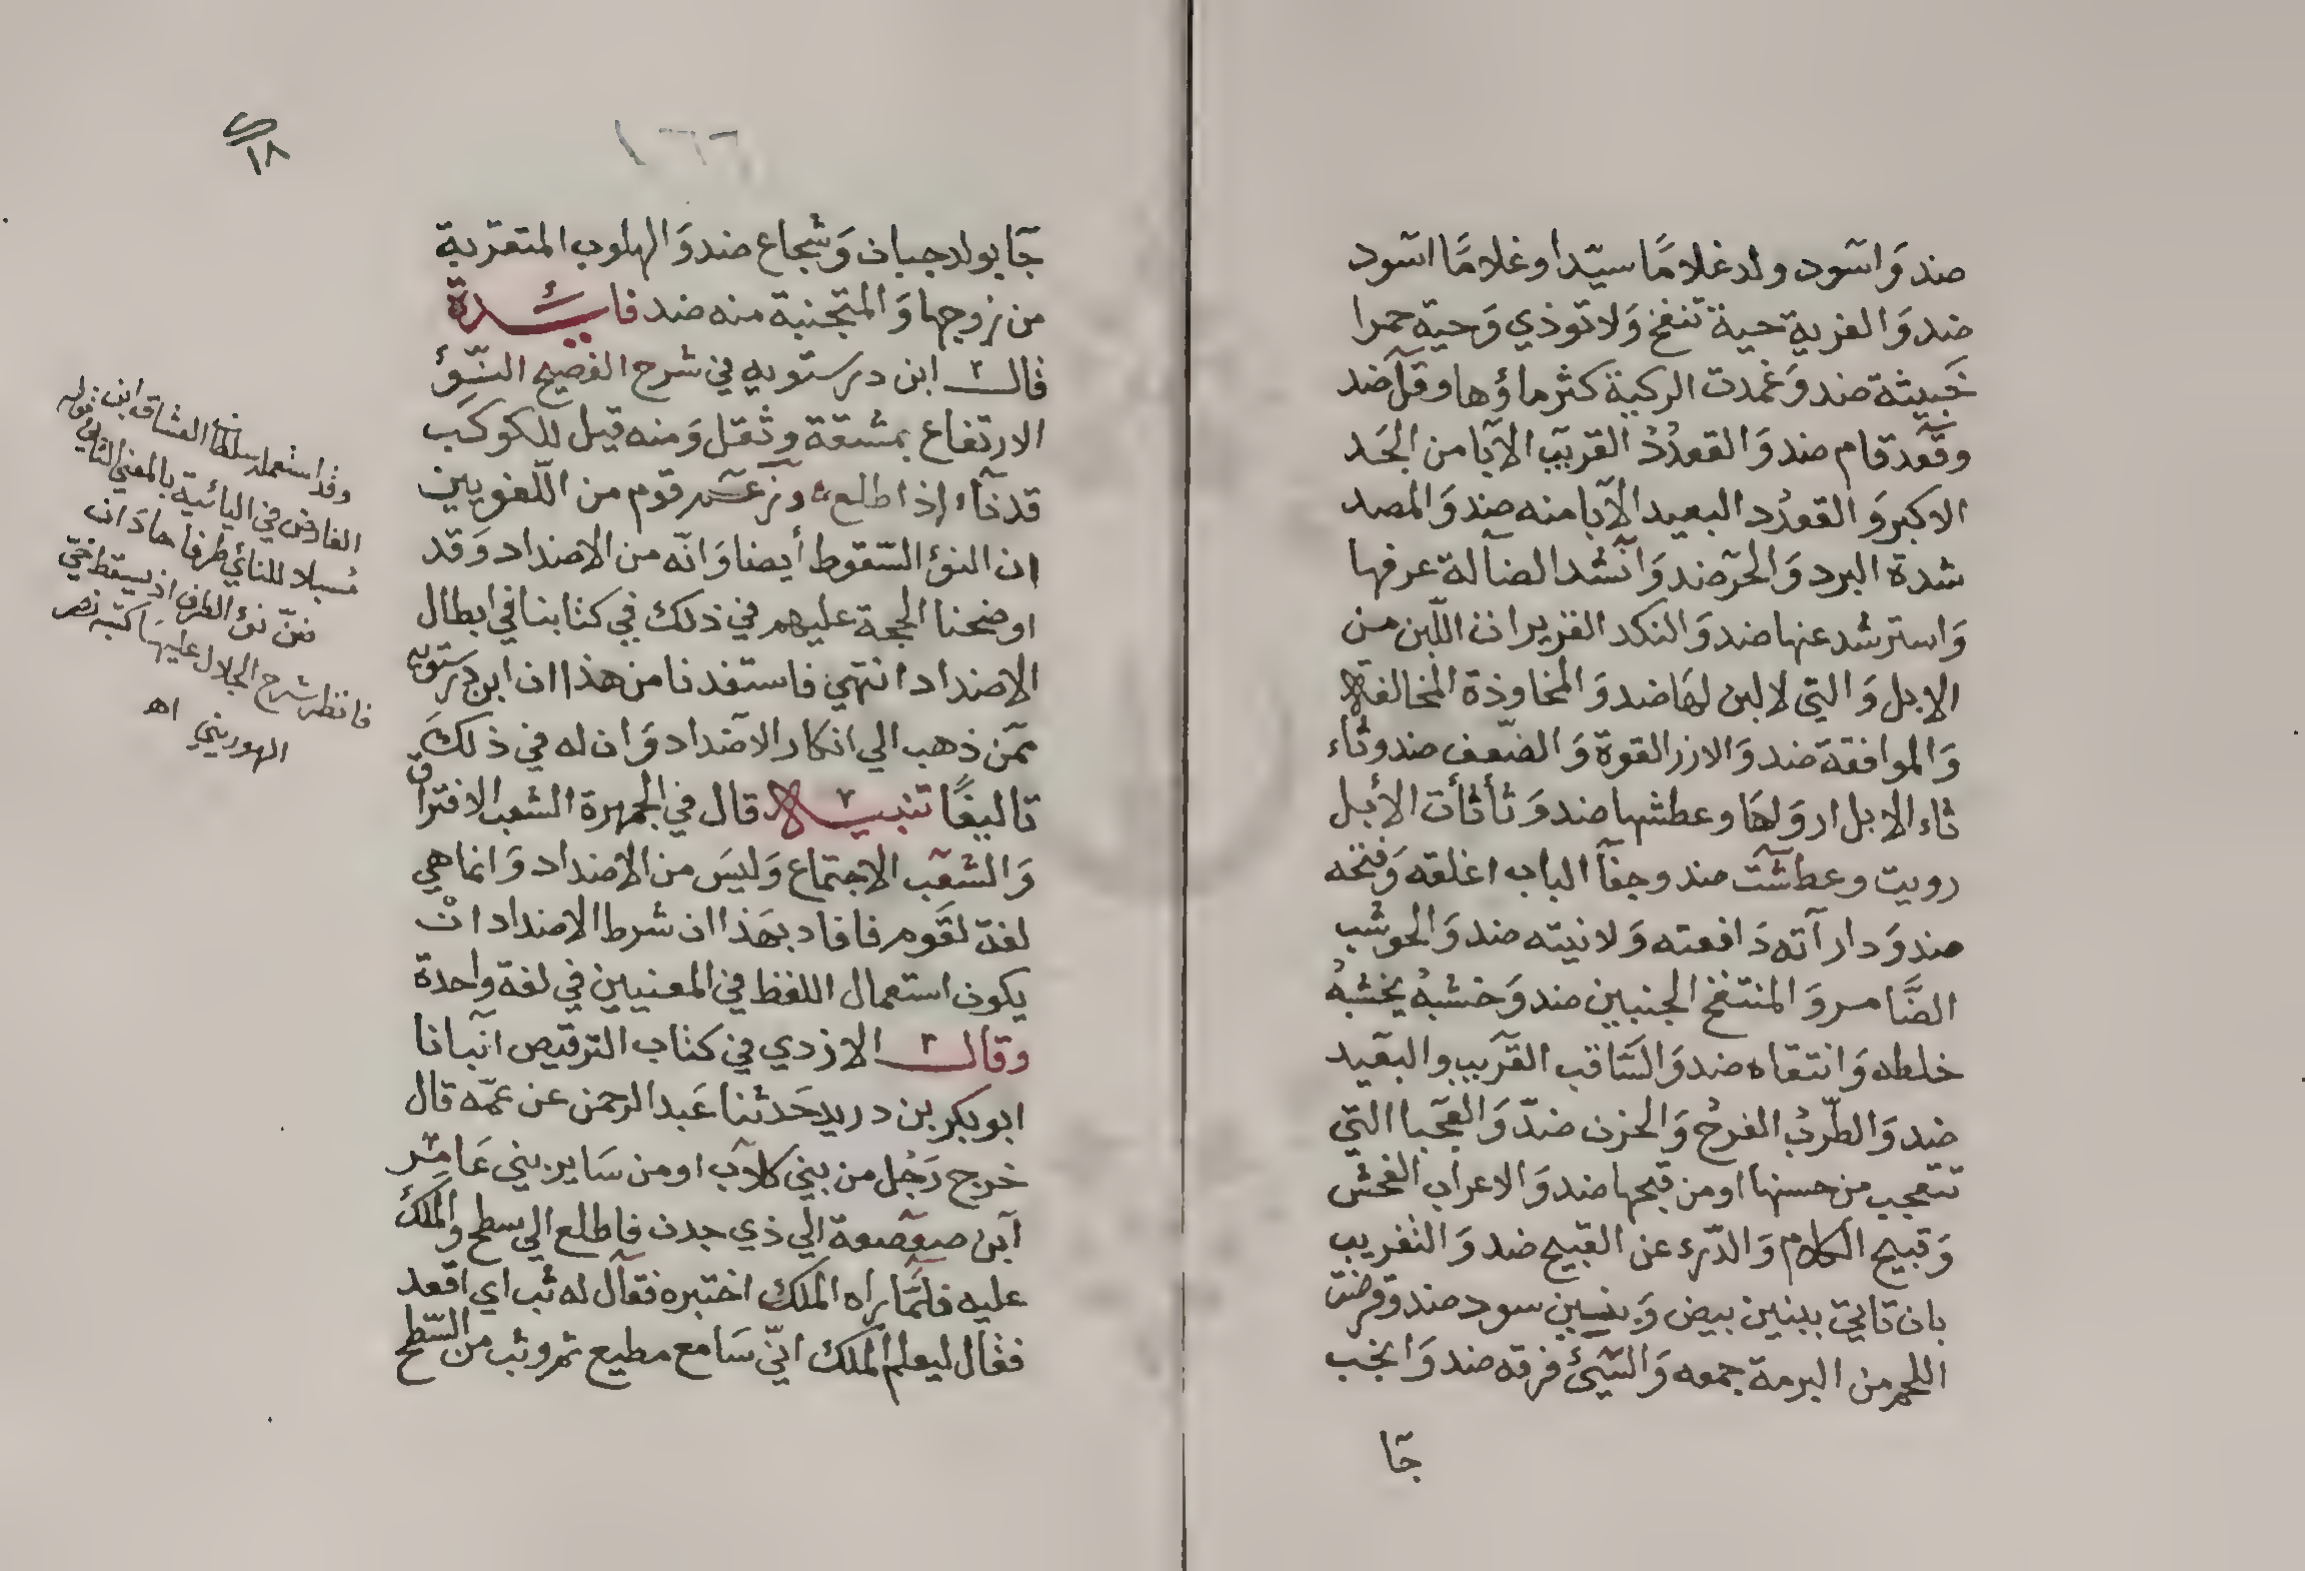 ضد وَاسود ولد غلامًا سيّدا او غلامًا اسود
ضد وَالعربية حية تنفخ وَلا توذي وَحية حمرا
خبيثة ضد وَغمدت الركية كثر ماؤها وقل ضد
وقعد قام ضد وَالقعدُدُ القريب الآبا من الجَد
الاكبر وَالقعدُد البعيد الآبا منه ضد وَالمصد
شدة البرد وَالحرّ ضد وَانشد الضالة عرفها
وَاسترشد عنها ضد وَالنكد الغزيرات اللّبن من
الابل وَالتي لا لبن لهَا ضد وَالمخاوذة المخالفة
وَالموافقة ضد وَالازر القوة وَالضّعف ضد وثاء
ثاء الابل اروَلهَا وعطشها ضد وَثأثأت الأبل
رويت وعطشت ضد وجفأ الباب اغلقه وَفتحه
ضد وَدارآته دَافعته وَلانيته ضد وَالحوشب
الضَّامر وَالمنتفخ الجنبين ضد وَخشبهُ يخشبهُ
خلطه وَانتقاه ضد وَالسَّاقب القريب والبعيد
ضد وَالطّربُ الفرحُ وَالحزن ضدّ وَالعجبا التي
تتعجب من حسنها او من قبحها ضد وَالاعراب الفحش
وَقبيح الكلام وَالدّرء عن القبيح ضد وَالتغريب
بان تاتي ببنين بيض وَبنين سود ضد وقرضت
اللحم من البرمة جمعه وَالشيئ فرقه ضد وَانجب
جَا
١٦٦
١٨
جَا بولد جبان وَشجاع ضد وَالهلوب المتقربة
من زوجها وَالمتجنبة منه ضد فايدة
قال ابن درستويه في شرح الفصيح النّوؤ
الارتفاع بمشقة وثقل وَمنه قيل للكوكب
قد ناء اذا طلع وزعم قوم من اللّغويين
ان النوؤ السّقوط أيضا وَانّه من الاضداد وَقد
اوضحنا الحجة عليهم في ذلك في كتابنا في ابطال
الاضداد انتهى فاستفدنا من هذا ان ابن درستويه
ممن ذهب الي انكار الاضداد وَان له في ذلكَ
تاليفًا تنبيه قال في الجمهرة الشعب الافتراق
وَالشعب الاجتماع وَليسَ من الاضداد وَانما هي
لغة لقَوم فافاد بهَذا ان شرط الاضداد انْ
يكون استعمال اللفظ في المعنيين في لغة واحدة
وقال الازدي في كتاب الترقيص انبانا
ابو بكر بن دريد حَدثنا عَبد الرحمن عن عمّه قال
خرج رَجُل من بني كلاب او من سَاير بني عَامر
ابن صعصعة الي ذي جدن فاطلع الي سطح والملك
عليه فلمَّا راه الملك اختبره فقال له ثب اي اقعد
فقال ليعلم الملك انّي سَامع مطيع ثم وثب من السّطح
وقد استعمله سلطان العشاق ابن
الفارض في اليائية بالمعني الثاني في قوله
مُسبلا للنائي طرفا جادَ ان
ضنّ نوؤ الطرف اذ يسقط خي
فانظر شرح الجلال عليها كتبه نصر
الهوريني اه